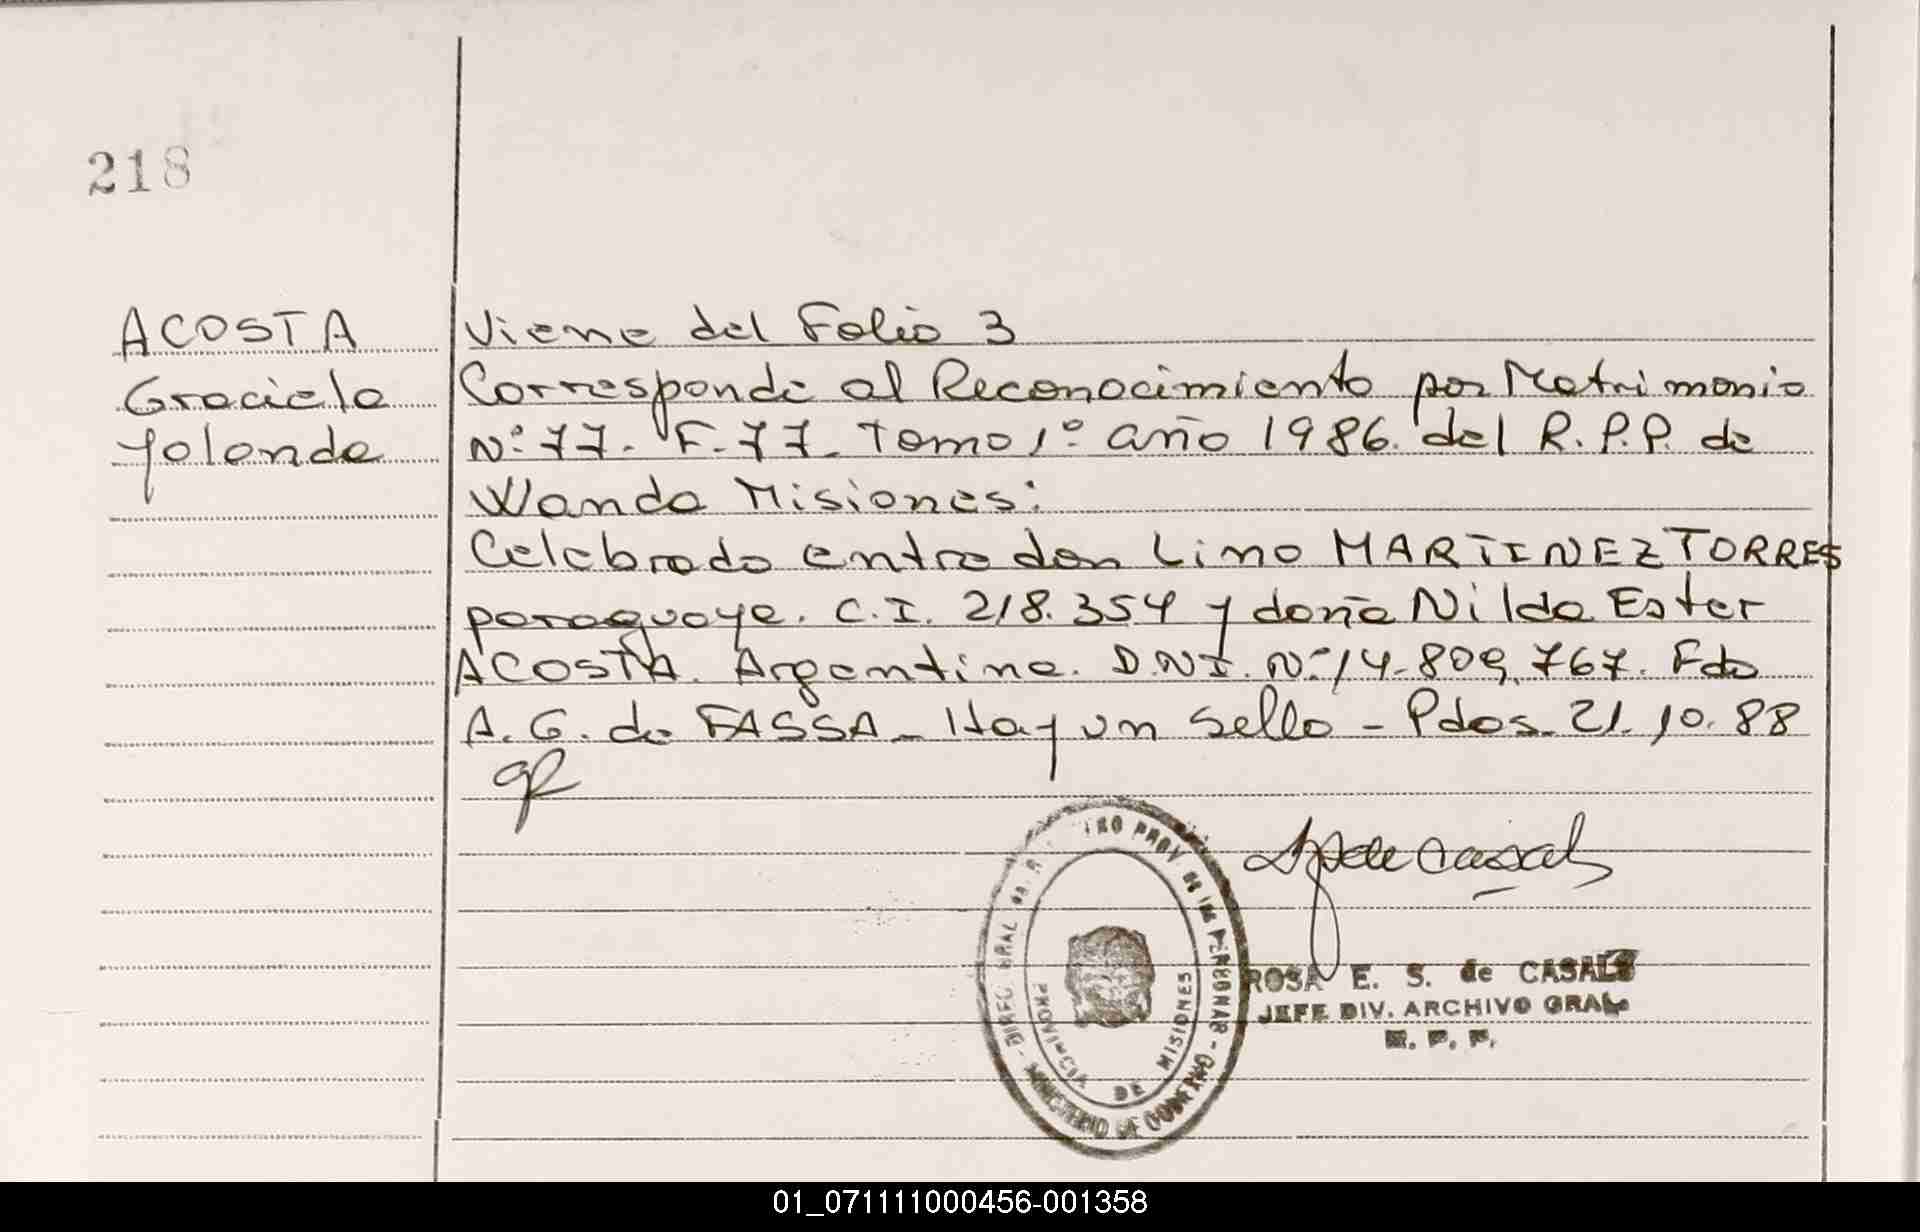 218
ACOSTA
Graciela
Yolanda
Viene del Folio 3
Corresponde al Reconocimiento por Matrimonio
Nº 77. F. 77. Tomo 1º año 1986. del R.P.P. de
Wanda Misiones:
Celebrado entre don Lino MARTINEZ TORRES
paraguayo. C.I. 218.354 y doña Nilda Ester
ACOSTA. Argentina. D.N.I. Nº 14.809.767. Fdo
A.G. de FASSA - Hay un sello - Pdas. 21.10.88
PROV. DE LAS PERSONAS - MINISTERIO DE GOBIERNO - DIREC. GRAL.
PROVINCIA DE MISIONES
de Casals
ROSA E. S. de CASALS
JEFE DIV. ARCHIVO GRAL.
R. P. P.
01_071111000456-001358